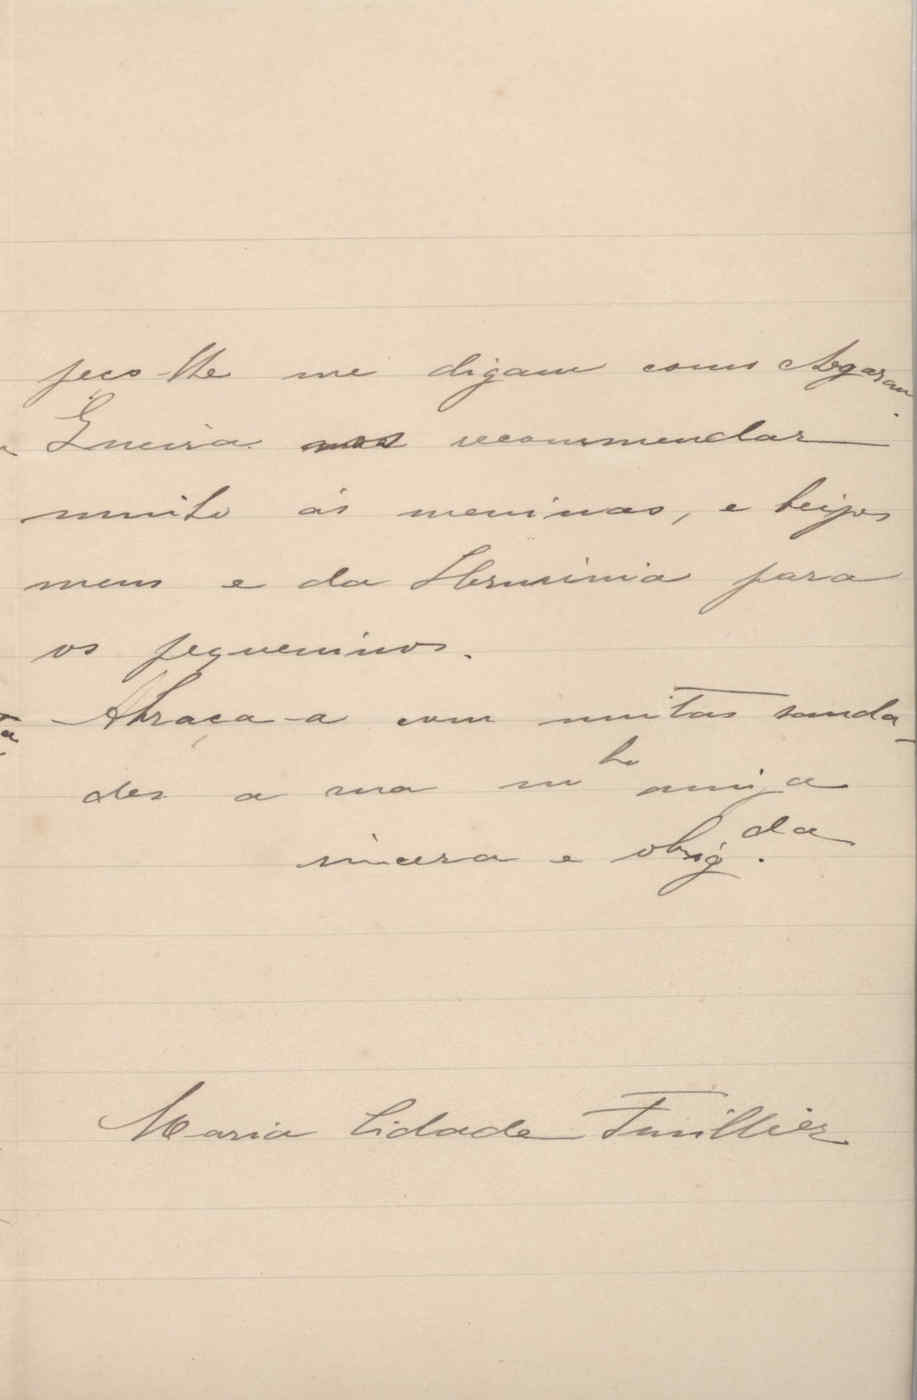 peço-lhe me digam como chegaram
Queira nos recommendar
muito ás meninas, e beijos
meus e da Herminia para
os pequeninos.
Abraça-a com muitas sauda-
des a sua mto amiga
sincera e obrigda.
Maria Cidade Furillier